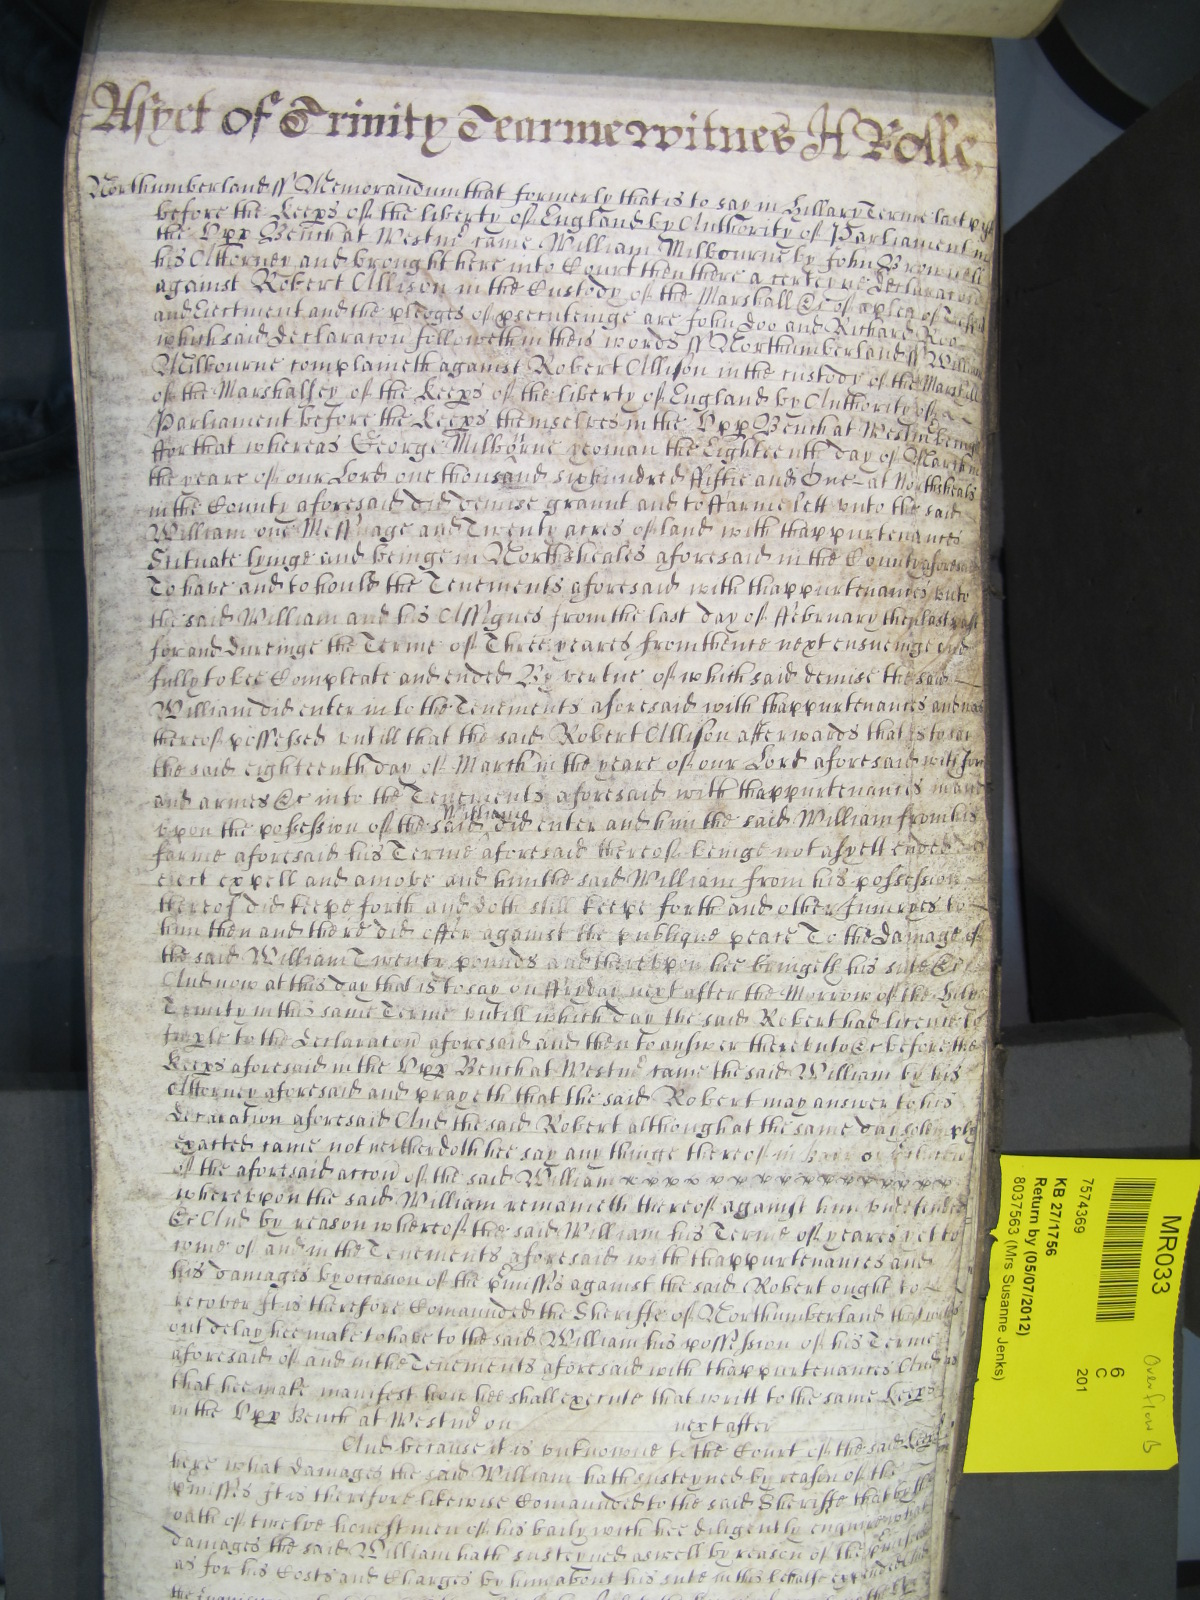 Asyet of Trinity Tearme witnes H Rolle,
Northumberland ss Memorandum that formerly that is to say in Hillary Terme last past
before the Keeps of the liberty of England by Authority of Parliament in
the Upp Bench at Westm came William Milbourne by John Brownell
his Attorney and brought here into Court then there a certeyne declaracon
against Robert Allison in the Custody of the Marshall &c of a plea of
and Eiectment and the pledges of psecuteinge are John Doo and Richard Roo
which said declaracon followeth in theis words ss Northumberland ss William
Milbourne complaineth against Robert Allison in the custody of the Marshall
of the Marshalsey of the Keeps of the liberty of England by Authority of
Parliament before the Keeps themselves in the Upp Bench at Westm beinge
ffor that whereas George Milborne yeoman the Eighteenth day of March in
the yeare of our Lord one thousand six hundred ffiftie and One at Northsheales
in the County aforesaid did demise graunt and to ffarme lett unto the said
William one Messuage and Twenty acres of land with thappurtenances
Scituate lyinge and beinge in Northsheales aforesaid in the County aforesaid
To have and to hould the Tenements aforesaid with thappurtenances unto
the said William and his Assignes from the last day of ffebruary then last past
for and dureinge the Terme of Three yeares from thence next ensueinge and
fully to bee Compleate and ended By vertue of which said demise the said
William did enter in to the Tenements aforesaid with thappurtenances and was
thereof possessed untill that the said Robert Allison afterwards that is to say
the said eighteenth day of March in the yeare of our Lord aforesaid with force
and armes &c into the Tenements aforesaid with thappurtenances in and
upon the possession of the said William did enter and him the said William from his
farme aforesaid his Terme aforesaid thereof beinge not asyett ended did
eiect expell and amove and him the said William from his possession
thereof did keepe forth and doth still keepe forth and other Iniuryes to
him then and there did offer against the publique peace To the Damage of
the said William Twenty pounds and thereupon hee bringeth his suite &c
And now at this day that is to say on ffryday next after the Morrow of the Holy
Trinity in this same Terme untill which day the said Robert had licence to
imple to the declaracon aforesaid and then to answer thereunto &c before the
Keeps aforesaid in the Upp Bench at Westm came the said William by his
Attorney aforesaid and prayeth that the said Robert may answer to his
declaration aforesaid And the said Robert although at the same day solemply
exacted came not neither doth hee say any thinge thereof in barr or
of the aforesaid accon of the said William
whereupon the said William remaineth thereof against him undefended
&c And by reason whereof the said William his Terme of yeares yet to
come of and in the Tenements aforesaid with thappurtenances and
his damages by occasion of the pmisses against the said Robert ought to
recover It is therefore Comaunded the Sheriffe of Northumberland that with
out delay hee make to have to the said William his possession of his Terme
aforesaid of and in the Tenements aforesaid with thappurtenances And
that hee make manifest how hee shall execute that writt to the same Keeps
in the Upp Bench at Westm on next after
And because it is unknowne to the Court of the said Keeps
here what damages the said William hath susteyned by reason of the
pmisses It is therefore likewise Comaunded to the said Sheriffe that by the
oath of twelve honest men of his bailywick hee diligently enquire what
damages the said William hath susteyned aswell by reason of the pmisses
as for his Costs and Charges by him about his suite in this behalfe expended
MR033
7574369
KB 27/1756
Return by (05/07/2012)
8037563 (Mrs Susanne Jenks)
6
C
201
Overflow B